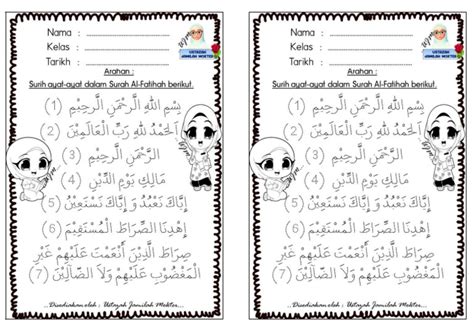 Nama : ..............................
Kelas : ..............................
Tarikh : ..............................
USTAZAH
JAMILAH MOKTER
Arahan :
Surih ayat-ayat dalam Surah Al-Fatihah berikut.
(1) بِسْمِ اللَّهِ الرَّحْمَنِ الرَّحِيْمِ
(2) اَلْحَمْدُ لِلَّهِ رَبِّ الْعَالَمِيْنَ
(3) الرَّحْمَنِ الرَّحِيْمِ
(4) مَالِكِ يَوْمِ الدِّيْنِ
(5) إِيَّاكَ نَعْبُدُ وَ إِيَّاكَ نَسْتَعِيْنُ
(6) إِهْدِنَا الصِّرَاطَ الْمُسْتَقِيْمَ
صِرَاطَ الَّذِيْنَ أَنْعَمْتَ عَلَيْهِمْ غَيْرِ
(7) الْمَغْضُوْبِ عَلَيْهِمْ وَلاَ الضَّالِّيْنَ
...Disediakan oleh : Ustazah Jamilah Mokter...
Nama : ..............................
Kelas : ..............................
Tarikh : ..............................
USTAZAH
JAMILAH MOKTER
Arahan :
Surih ayat-ayat dalam Surah Al-Fatihah berikut.
(1) بِسْمِ اللَّهِ الرَّحْمَنِ الرَّحِيْمِ
(2) اَلْحَمْدُ لِلَّهِ رَبِّ الْعَالَمِيْنَ
(3) الرَّحْمَنِ الرَّحِيْمِ
(4) مَالِكِ يَوْمِ الدِّيْنِ
(5) إِيَّاكَ نَعْبُدُ وَ إِيَّاكَ نَسْتَعِيْنُ
(6) إِهْدِنَا الصِّرَاطَ الْمُسْتَقِيْمَ
صِرَاطَ الَّذِيْنَ أَنْعَمْتَ عَلَيْهِمْ غَيْرِ
(7) الْمَغْضُوْبِ عَلَيْهِمْ وَلاَ الضَّالِّيْنَ
...Disediakan oleh : Ustazah Jamilah Mokter...